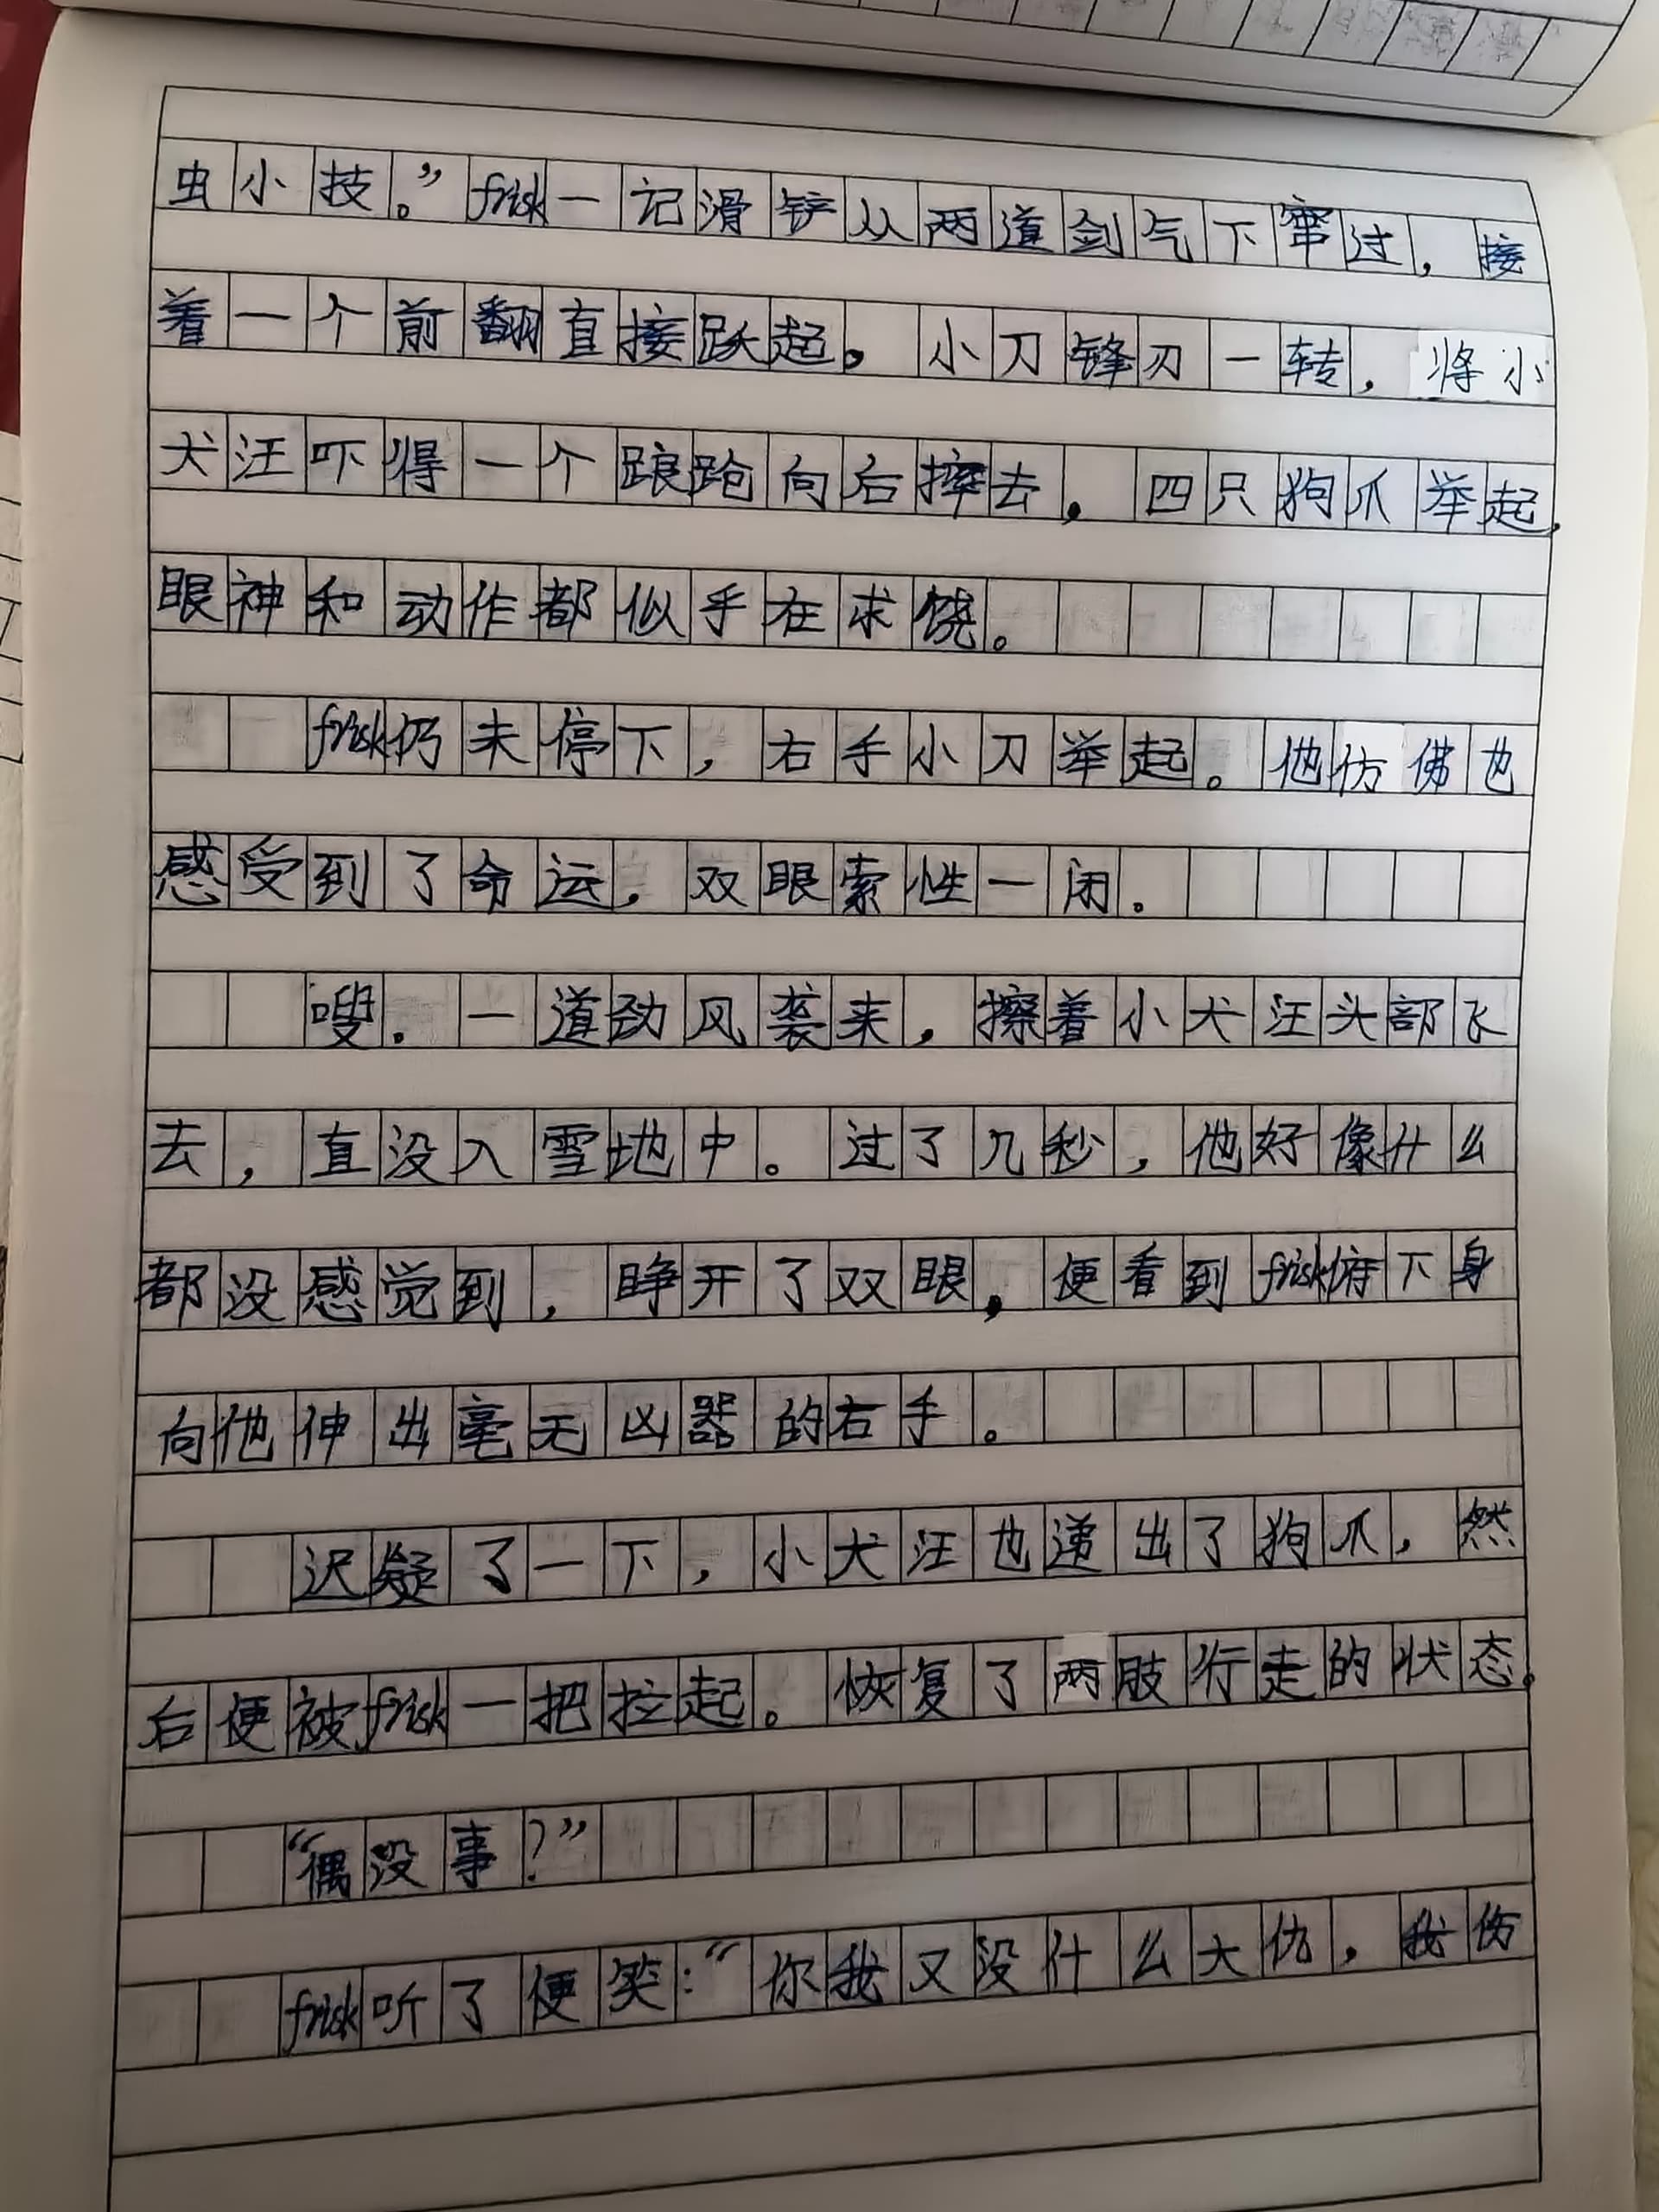 虫小技。”frisk一记滑铲从两道剑气下窜过，接
着一个前翻直接跃起。小刀锋刃一转，将小
犬汪吓得一个踉跄向后摔去，四只狗爪举起，
眼神和动作都似乎在求饶。
frisk仍未停下，右手小刀举起。他仿佛也
感受到了命运，双眼索性一闭。
嗖。一道劲风袭来，擦着小犬汪头部飞
去，直没入雪地中。过了几秒，他好像什么
都没感觉到，睁开了双眼，便看到frisk俯下身
向他伸出毫无凶器的右手。
迟疑了一下，小犬汪也递出了狗爪，然
后便被frisk一把拉起。恢复了两肢行走的状态。
“偶没事？”
frisk听了便笑：“你我又没什么大仇，我伤